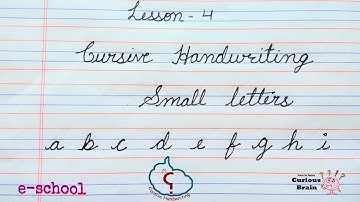 Lesson - 4
Cursive Handwriting
Small letters
a b c d e f g h i
e-school
Cursive Handwriting
Curious
Brain